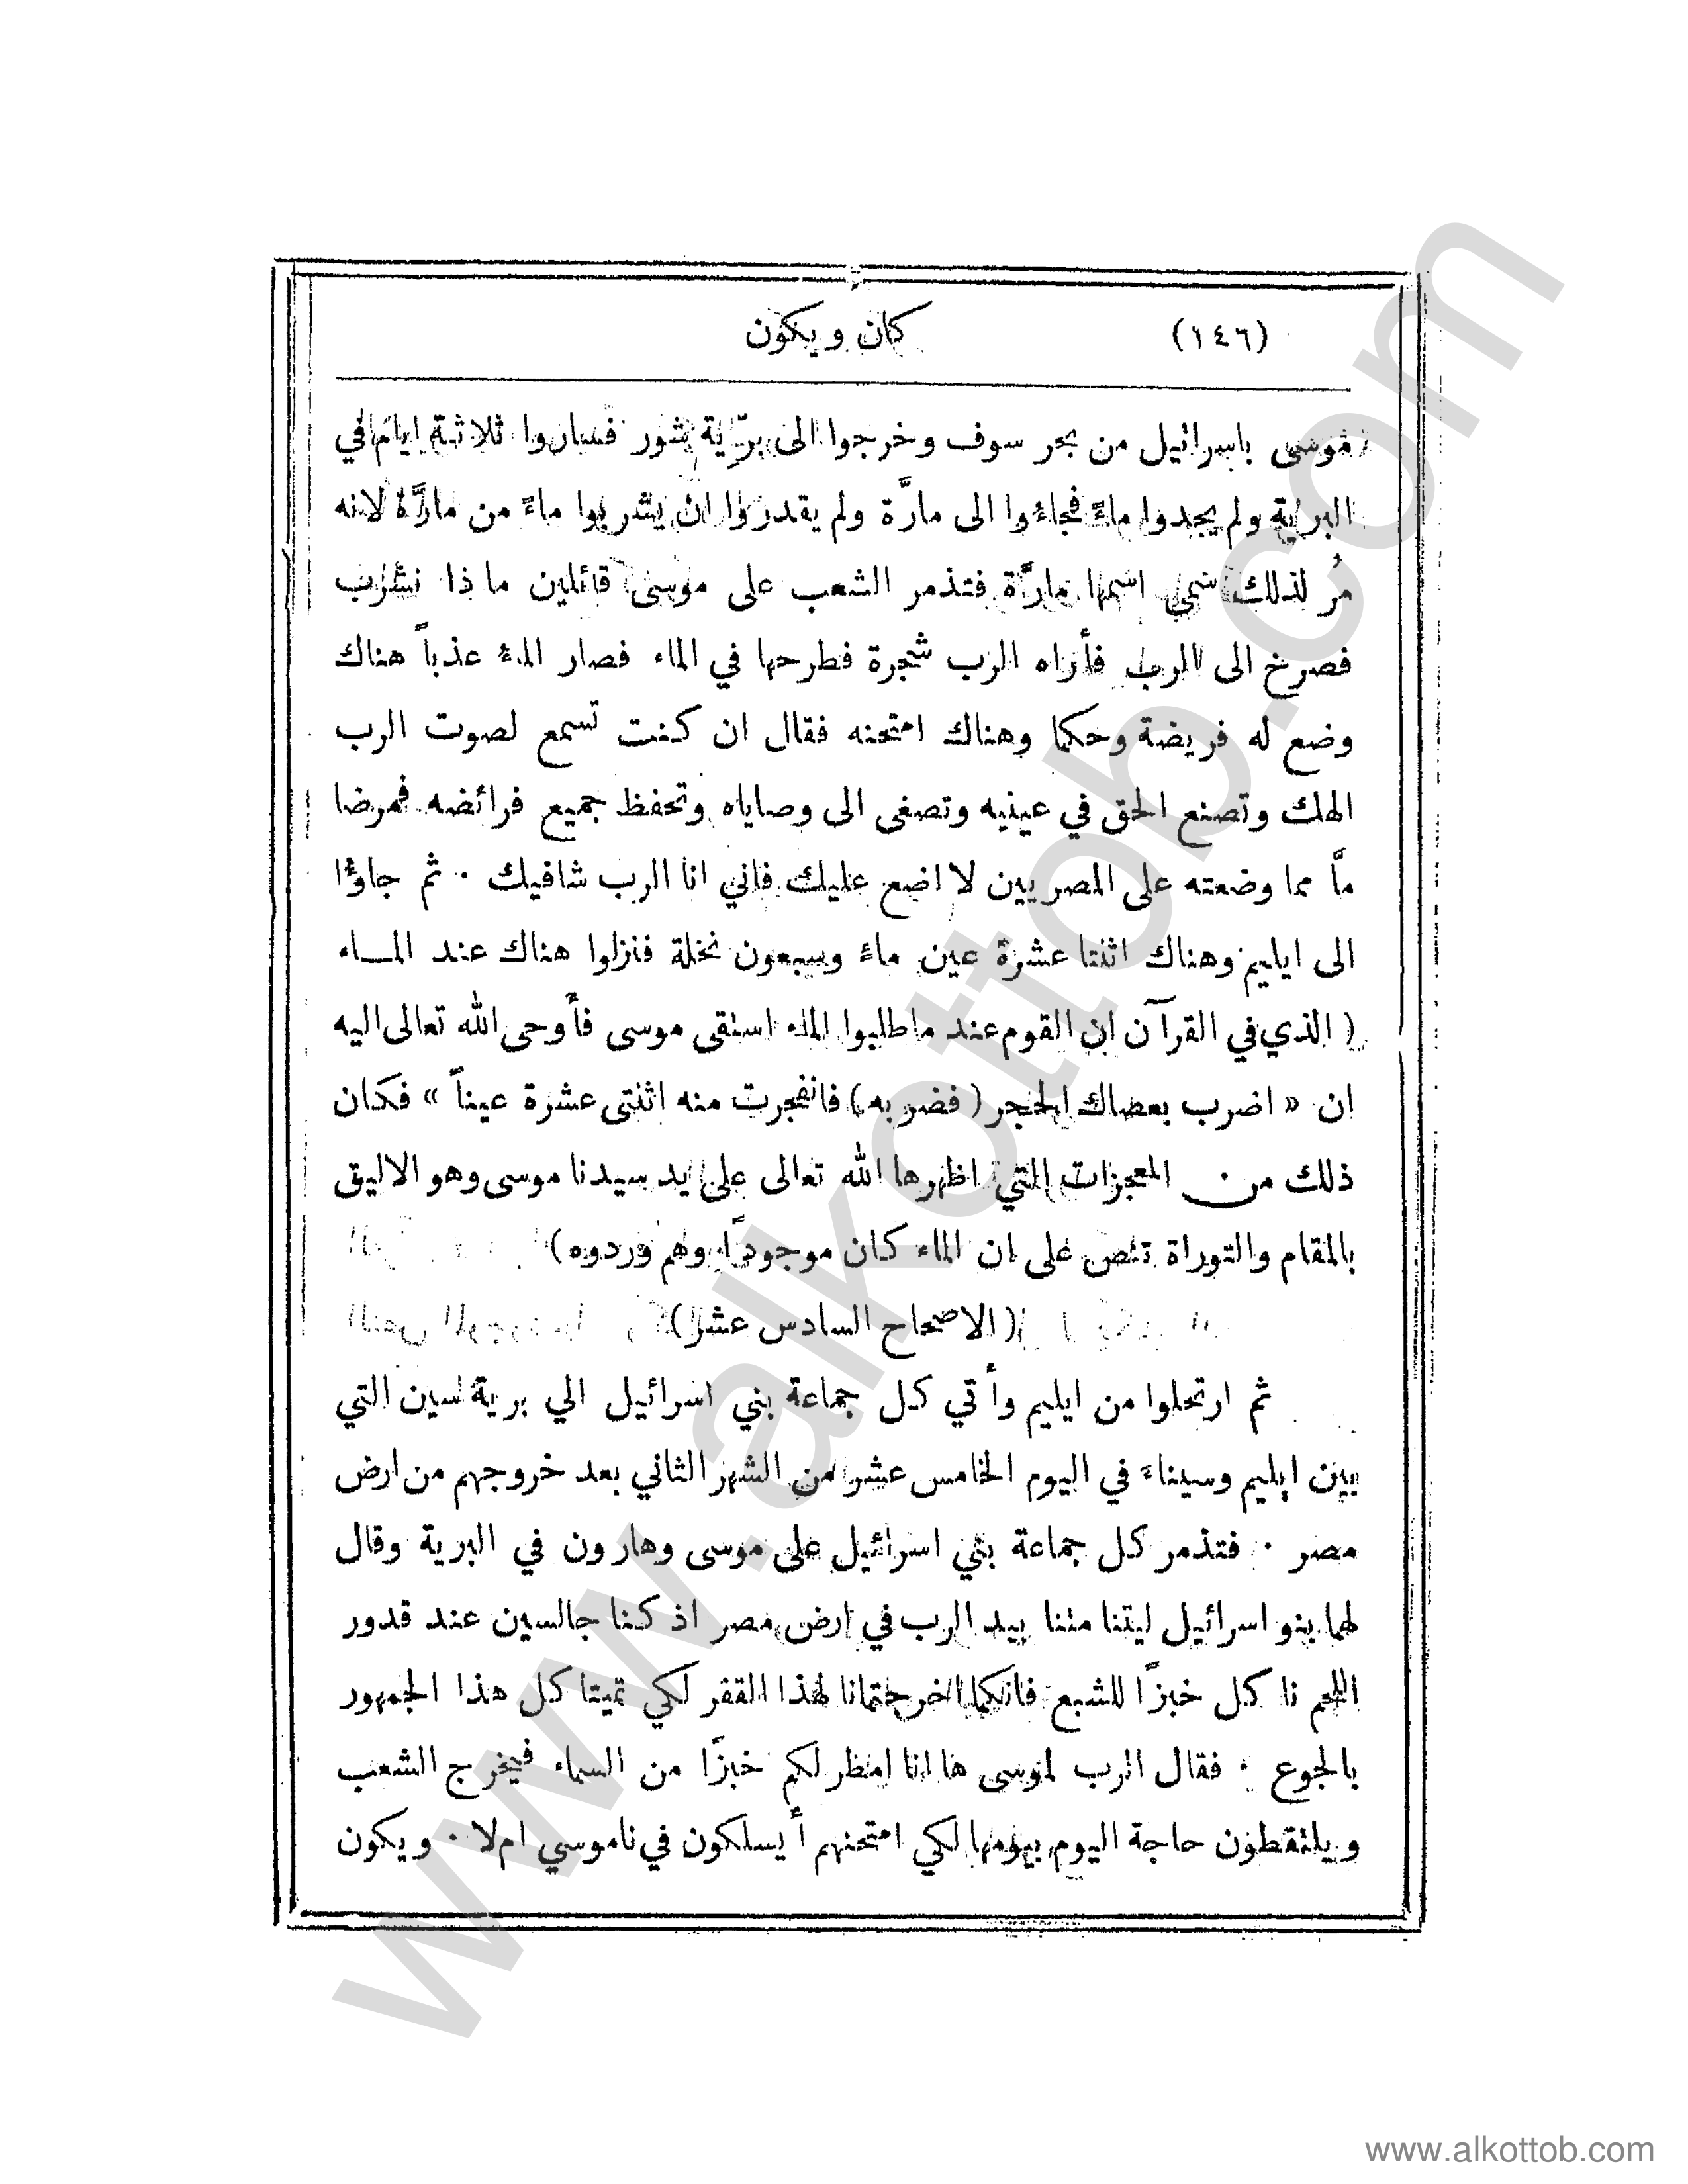 (١٤٦) كان ويكون
موسى باسرائيل من بحر سوف وخرجوا الى برّية شور فساروا ثلاثة ايام في
البراية ولم يجدوا ماءً فجاءُوا الى مارَّة ولم يقدروا ان يشربوا ماءً من مارَّة لانه
مُر لذلك سمي اسمها مارَّة فتذمر الشعب على موسى قائلين ماذا نشرب
فصرخ الى الرب فأراه الرب شجرة فطرحها في الماء فصار الماءُ عذباً هناك
وضع له فريضة وحكما وهناك امتحنه فقال ان كنت تسمع لصوت الرب
الهك وتصنع الحق في عينيه وتصغى الى وصاياه وتحفظ جميع فرائضه فمرضا
مَّا مما وضعته على المصريين لا اضع عليك فاني انا الرب شافيك ٠ ثم جاؤا
الى ايليم وهناك اثنتا عشرة عين ماءً وسبعون نخلة فنزلوا هناك عند المـاء
( الذي في القرآن ان القوم عند ماطلبوا الماء استقى موسى فأوحى الله تعالى اليه
ان « اضرب بعصاك الحجر ( فضربه ) فانفجرت منه اثنتى عشرة عيناً » فكان
ذلك من المعجزات التي اظهرها الله تعالى على يد سيدنا موسى وهو الاليق
بالمقام والتوراة تنص على ان الماء كان موجودًا وهم وردوه )
( الاصحاح السادس عشر )
ثم ارتحلوا من ايليم وأتي كل جماعة بني اسرائيل الي برية سين التي
بين ايليم وسيناء في اليوم الخامس عشر من الشهر الثاني بعد خروجهم من ارض
مصر ٠ فتذمر كل جماعة بني اسرائيل على موسى وهارون في البرية وقال
لهما بنو اسرائيل ليتنا متنا بيد الرب في ارض مصر اذ كنا جالسين عند قدور
اللحم نا كل خبزًا للشبع فانكما اخرجتمانا لهذا القفر لكي تميتا كل هذا الجمهور
بالجوع ٠ فقال الرب لموسى ها انا امطر لكم خبزًا من السماء فيخرج الشعب
ويلتقطون حاجة اليوم بيومها لكي امتحنهم أيسلكون في ناموسي ام لا ٠ ويكون
www.alkottob.com
www.alkottob.com